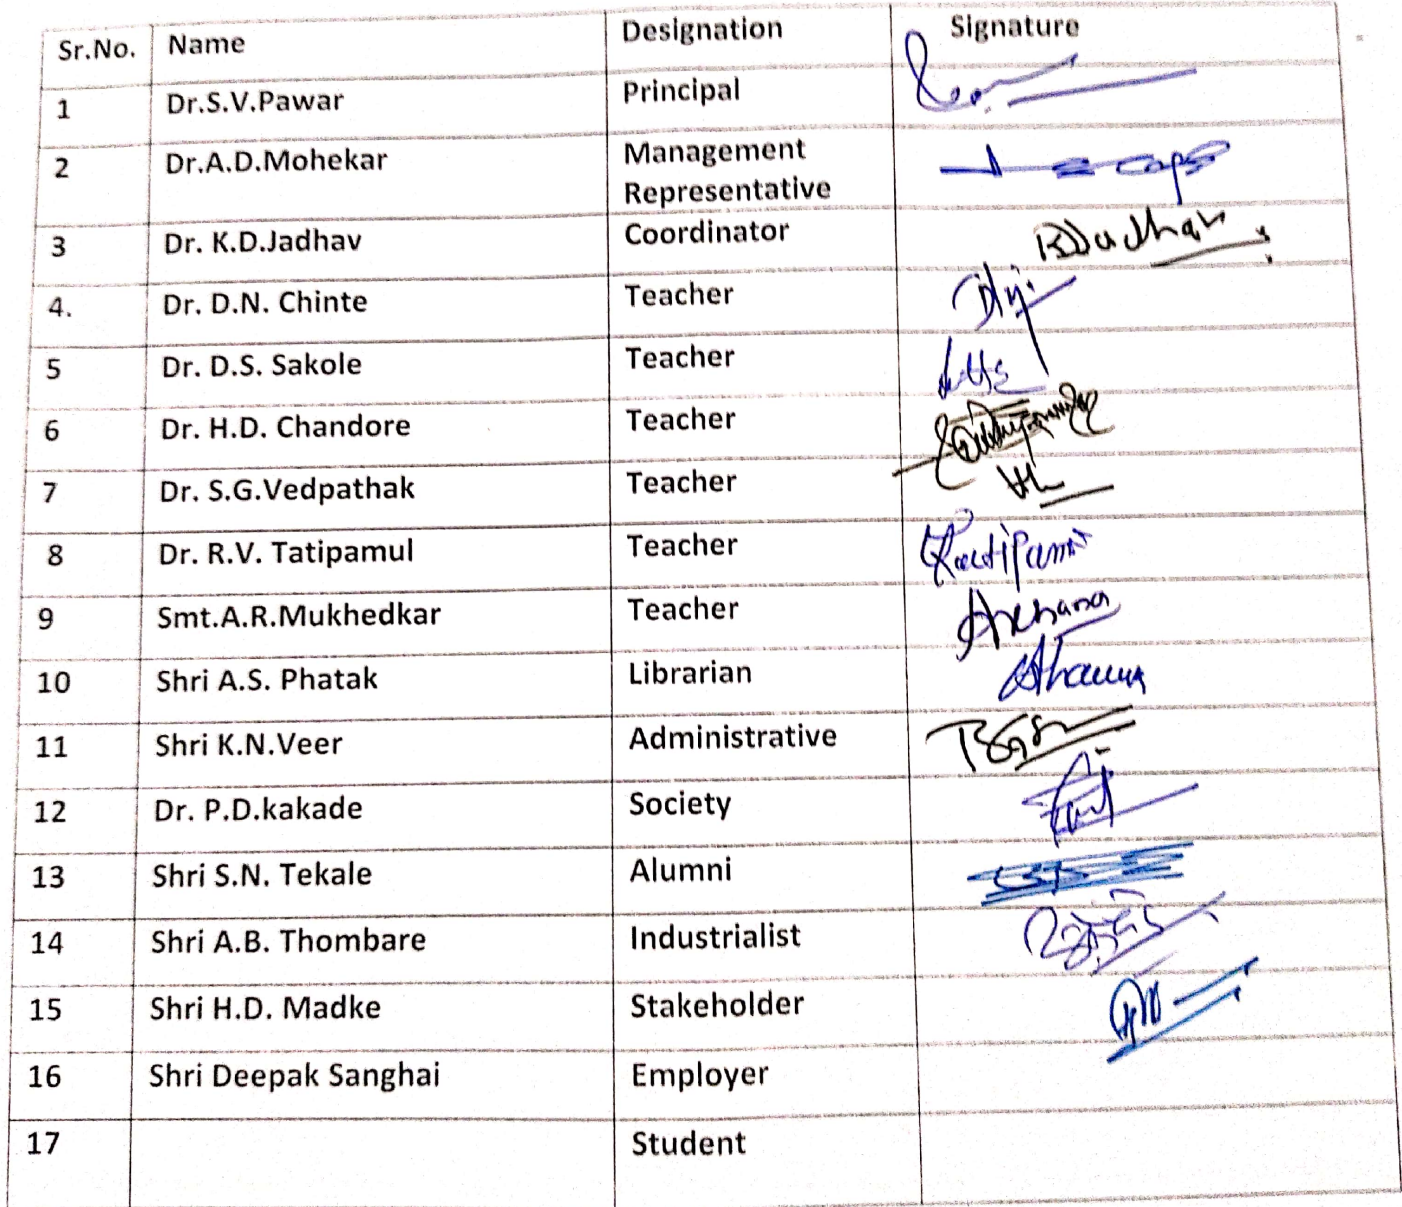 Sr.No. Name Designation Signature
1 Dr.S.V.Pawar Principal
2 Dr.A.D.Mohekar Management
Representative
3 Dr. K.D.Jadhav Coordinator
4. Dr. D.N. Chinte Teacher
5 Dr. D.S. Sakole Teacher
6 Dr. H.D. Chandore Teacher
7 Dr. S.G.Vedpathak Teacher
8 Dr. R.V. Tatipamul Teacher
9 Smt.A.R.Mukhedkar Teacher Archana
10 Shri A.S. Phatak Librarian
11 Shri K.N.Veer Administrative
12 Dr. P.D.kakade Society
13 Shri S.N. Tekale Alumni
14 Shri A.B. Thombare Industrialist
15 Shri H.D. Madke Stakeholder
16 Shri Deepak Sanghai Employer
17 Student